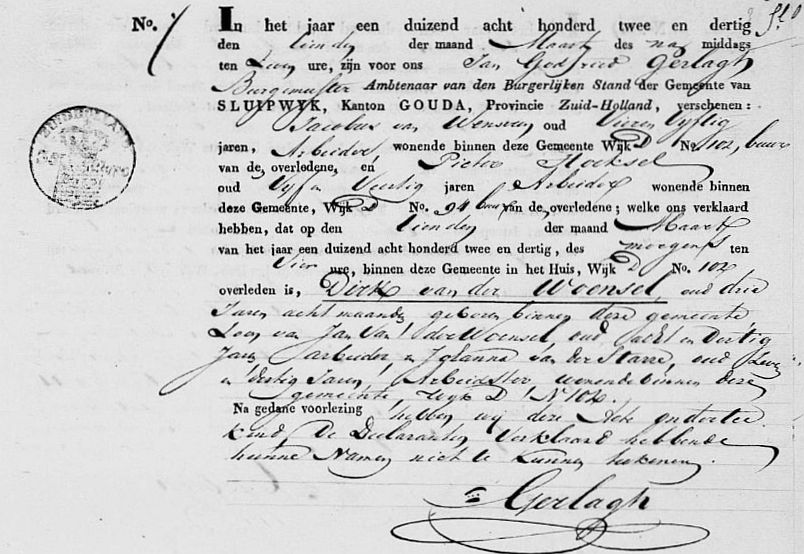 No. 7
In het jaar een duizend acht honderd twee en dertig
den tienden der maand Maart des na middags
ten ure, zijn voor ons Jan Godfried Gerlagh
Burgemeester Ambtenaar van den Burgerlijken Stand der Gemeente van
SLUIPWYK, Kanton GOUDA, Provincie Zuid-Holland, verschenen:
Jacobus van Wensveen oud Vier en Vyftig
jaren, Arbeider wonende binnen deze Gemeente Wijk D No. 102, buur
van de overledene, en Pieter Hoeksel
oud Vyf en Veertig jaren Arbeider wonende binnen
deze Gemeente, Wijk D No. 94 buur van de overledene; welke ons verklaard
hebben, dat op den tienden der maand Maart
van het jaar een duizend acht honderd twee en dertig, des morgens ten
Vier ure, binnen deze Gemeente in het Huis, Wijk D No. 102
overleden is, Dirk van der Woensel, oud drie
Jaren acht maanden geboren binnen deze gemeente
Zoon van Jan Van der Woensel oud acht en Dertig
Jaren arbeider en Johanna van der Starre, oud Zeven
en dertig Jaren, Arbeidster wonende binnen deze
gemeente, Wyk D N 102.
Na gedane voorlezing hebben wy deze Acte ondertee
kend, De Declaranten Verklaard hebbende
hunne Namen niet te kunnen tekenen.
Gerlagh